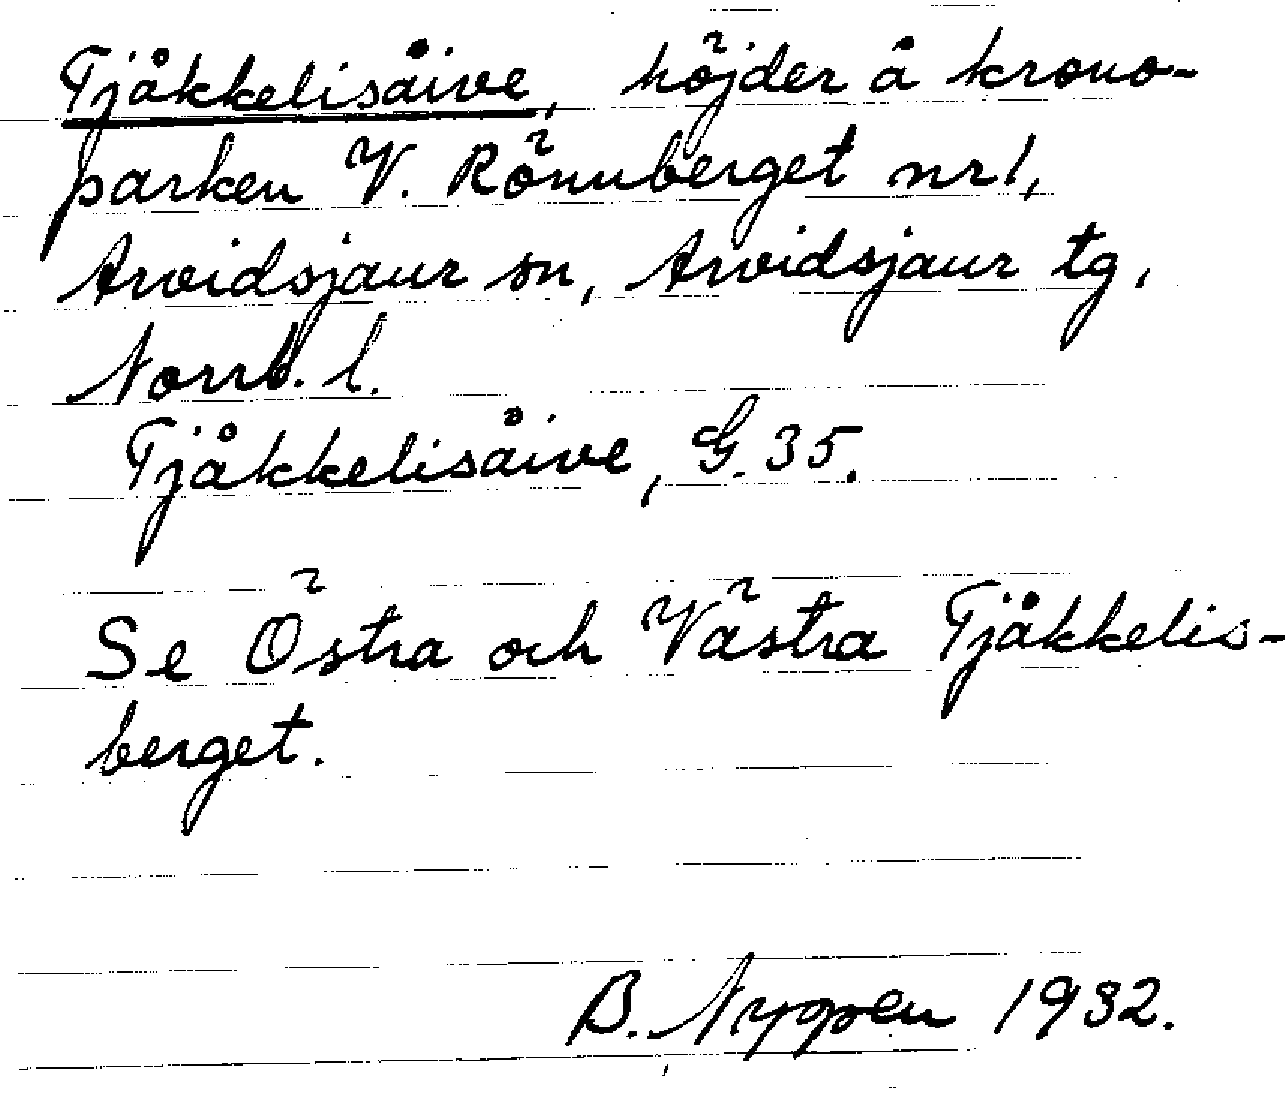 Tjåkkelisåive, höjder å krono-
parken V. Rönnberget nr 1,
Arvidsjaur sn, Arvidsjaur tg,
Norrb. l.
Tjåkkelisåive, G. 35.
Se Östra och Västra Tjåkkelis-
berget.
B. Nyppen 1932.